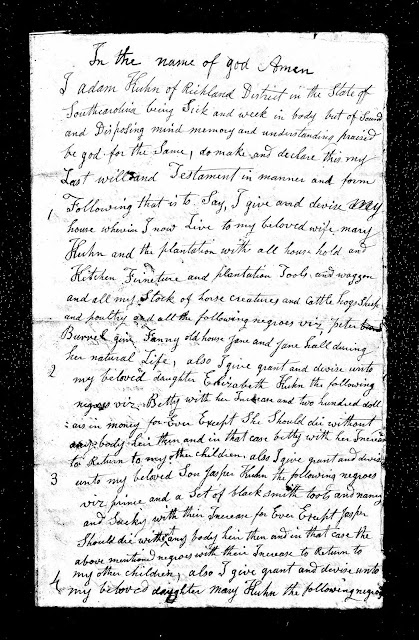 In the name of god Amen
I adam Huhn of Richland District in the State of
Southcarolina being Sick and week in body but of Sound
and Disposing mind memory and understanding praised
be god for the Same, do make and declare this my
Last will and Testament in manner and form
1 Following that is to Say, I give and devise my
house wherein I now Live to my beloved wife mary
Huhn and the plantation with all house hold and
Kitchen Furneture and plantation Tools and waggon
and all my Stock of horse creatures and Cattle hogs Sheep
and poultry and all the following negroes viz peter
Burrel Fanny old house Jane and Jane hall during
her natural Life, also I give grant and devise unto
2 my beloved daughter Elizabeth Huhn the following
negroes viz. Betty with her Increase and two hundred doll
ars in money for Ever Except She Should die without
any body heir then and in that case betty with her Increase
to Return to my other children, also I give grant and devise
3 unto my beloved Son Jasper Huhn the following negroes
viz prince and a Set of black smith tools and nancy
and Sucky with their Increase for Ever Except Jasper
Should die without any body heir then and in that case the
above mentioned negroes with their Increase to Return to
my other children, also I give grant and devise unto
4 my beloved daughter mary Huhn the following negroes